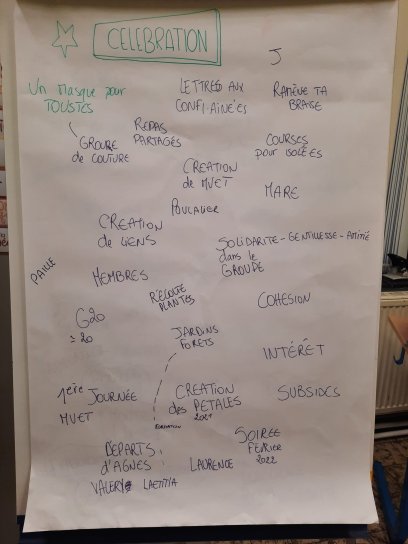 CELEBRATION
J
Un Masque pour
TOUSTES
LETTRES AUX
CONFI-AINÉ·ES
RAMÈNE TA
BRAISE
GROUPE
de COUTURE
REPAS
PARTAGÉS
COURSES
pour ISOLÉ·ES
CREATION
de MUET
MARE
POULAILLER
CREATION
de LIENS
SOLIDARITÉ - GENTILLESSE - AMITIÉ
dans le
GROUPE
PAILLE
MEMBRES
RÉCOLTE
PLANTES
COHÉSION
G20
≥ 20
JARDINS
FORETS
INTÉRÊT
1ère JOURNÉE
MUET
CREATION
des PETALES
2021
SUBSIDES
FORMATION
SOIRÉE
FÉVRIER
2022
DÉPARTS
d'AGNES
LAURENCE
LAETITIA